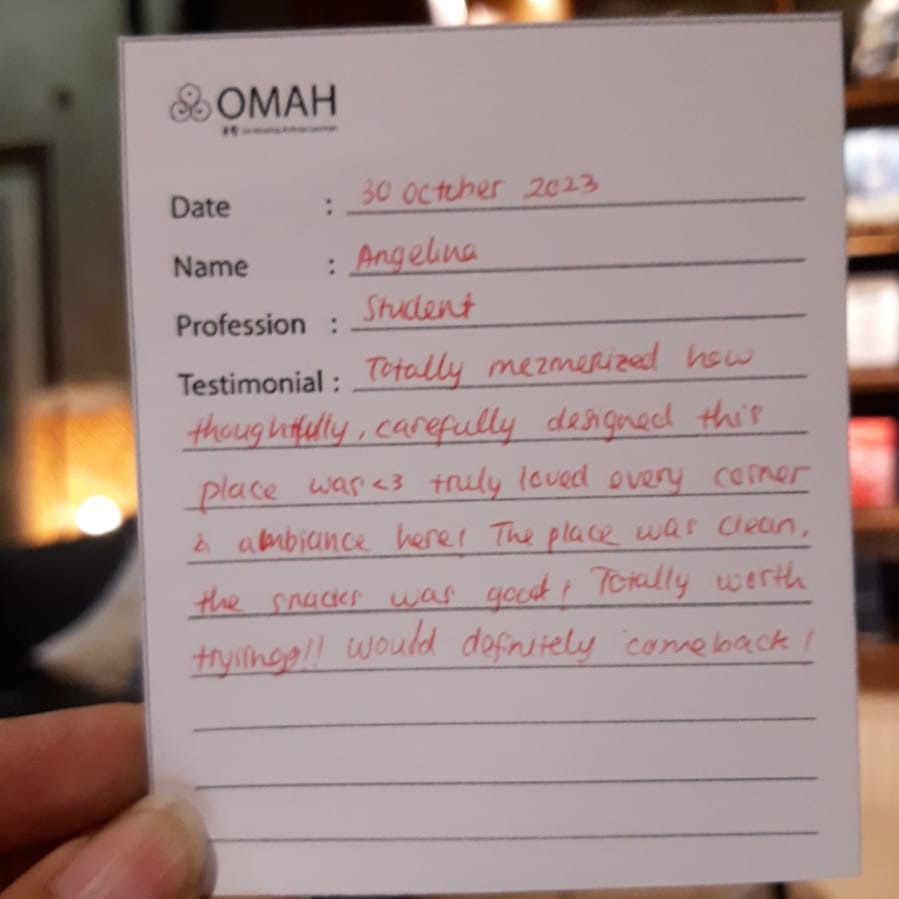 OMAH
Date : 30 October 2023
Name : Angelina
Profession : Student
Testimonial : Totally mezmerized how
thoughtfully, carefully designed this
place was <3 truly loved every corner
& ambiance here! The place was clean,
the snacks was good! Totally worth
would definitely comeback!